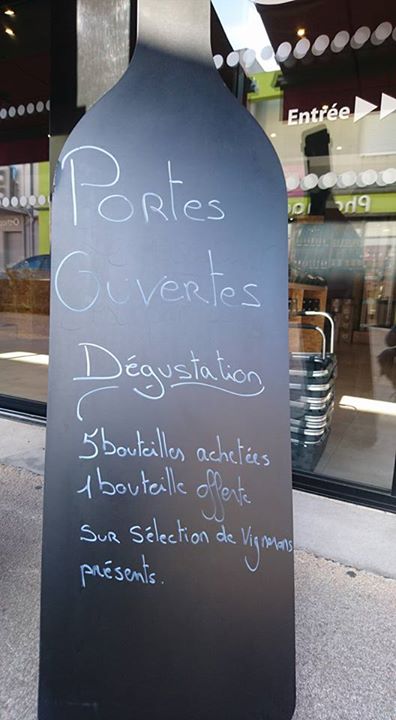 Entrée
Portes
Ouvertes
Dégustation
5 bouteilles achetées
1 bouteille offerte
Sur Sélection de Vignerons
présents.